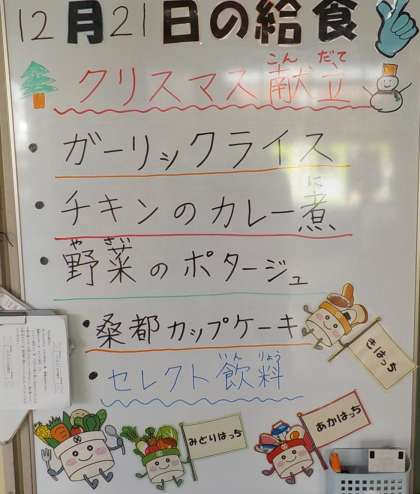 12月21日の給食
クリスマス献立
こんだて
ガーリックライス
チキンのカレー煮
に
野菜のポタージュ
やさい
桑都カップケーキ
セレクト飲料
いんりょう
きはっち
みどりはっち
あかはっち